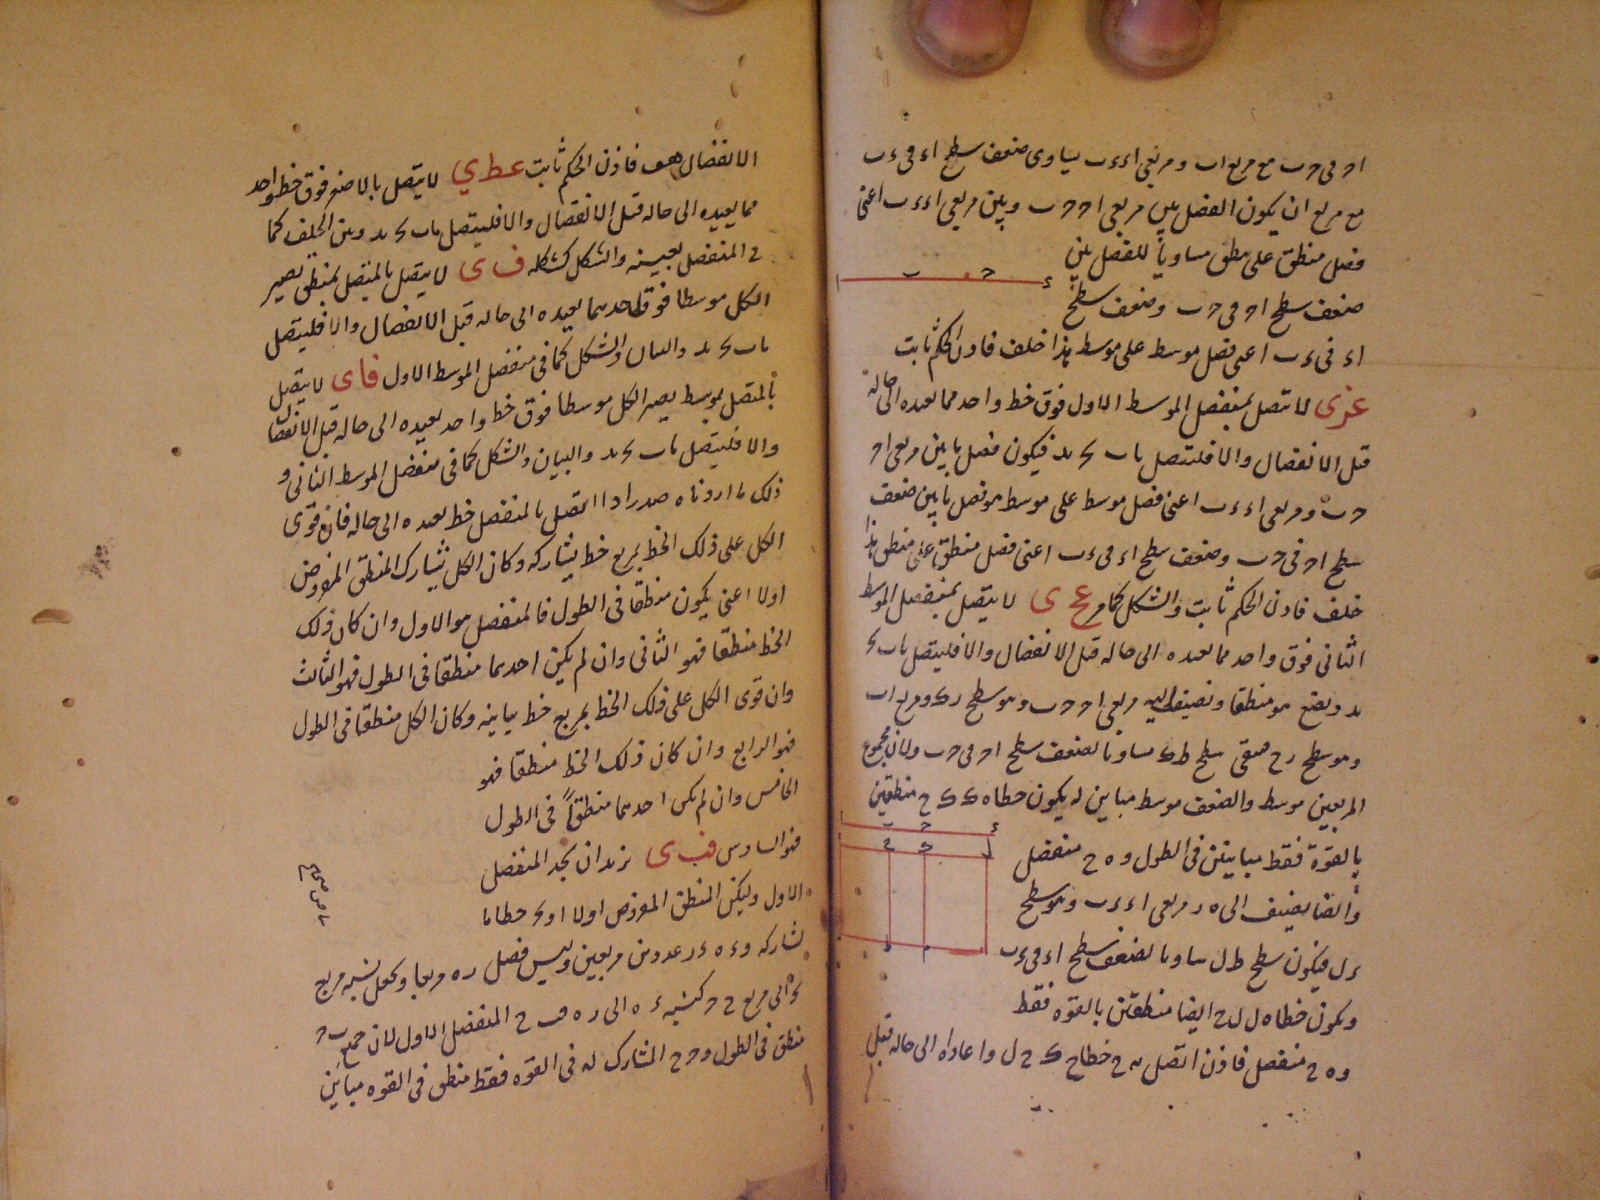 اح في ح ب مع مربع اب ومربعي اء ء ب يساوي ضعف سطح اء في ء ب
مع مربع ان يكون الفضل بين مربعي اح ح ب وبين مربعي اء ء ب اعني
فضل منطق على منطق مساويا للفضل بين
ضعف سطح اح في ح ب وضعف سطح
اء في ء ب اعني فضل موسط على موسط هذا خلف فاذن الحكم ثابت
عز ى لا يتصل بمنفصل الموسط الاول فوق خط واحد مما يعيده الى حاله
قبل الانفصال والا فليتصل باب ب ح ب د فيكون فضل ما بين مربعي اح
ح ب ومربعي اء ء ب اعني فضل موسط على موسط هو فضل ما بين ضعف
سطح اح في ح ب وضعف سطح اء في ء ب اعني فضل منطق على منطق هذا
خلف فاذن الحكم ثابت والشكل كما مر عح ى لا يتصل بمنفصل الموسط
الثاني فوق واحد مما يعيده الى حاله قبل الانفصال والا فليتصل باب ب ح
ب د ونضع منطقا ونضيف اليه مربعي اح ح ب وهو سطح ومربع اب
وهو سطح رح فبقي سطح ط ك مساويا لضعف سطح اح في ح ب ولان مجموع
المربعين موسط والضعف موسط مباين له يكون خطا ه ك ك ح منطقين
بالقوة فقط متباينين في الطول و ه ح منفصل
وايضا نضيف الى ه ر مربعي اء ء ب وهو سطح
ر ل فيكون سطح ط ل مساويا لضعف سطح اء في ء ب
ويكون خطا ه ل ل ح ايضا منطقين بالقوه فقط
و ه ح منفصل فاذن اتصل به ح خطا ح ك ح ل واعاداه الى حاله قبل
الانفصال هف فاذن الحكم ثابت عط ي لا يتصل بالاصغر فوق خط واحد
مما يعيده الى حاله قبل الانفصال والا فليتصل باب ب ح ب د وبين الخلف كما
في المنفصل بعينه والشكل كشكله ف ى لا يتصل بالمتصل بمنطق يصير
الكل موسطا فوق احدهما يعيده الى حاله قبل الانفصال والا فليتصل
باب ب ح ب د والبيان والشكل كما في منفصل الموسط الاول فا ى لا يتصل
بالمتصل بموسط يصير الكل موسطا فوق خط واحد يعيده الى حاله قبل الانفصال
والا فليتصل باب ب ح ب د والبيان والشكل كما في منفصل الموسط الثاني و
ذلك ما اردناه صدر اذا اتصل بالمنفصل خط يعيده الى حاله فان قوى
الكل على ذلك الخط بمربع خط يشاركه وكان الكل يشارك المنطق المفروض
اولا اعني يكون منطقا في الطول فالمنفصل هو الاول وان كان ذلك
الخط منطقا فهو الثاني وان لم يكن احدهما منطقا في الطول فهو الثالث
وان قوى الكل على ذلك الخط بمربع خط يباينه وكان الكل منطقا في الطول
فهو الرابع وان كان ذلك الخط منطقا فهو
الخامس وان لم يكن احدهما منطقا في الطول
فهو السادس فب ى نريد ان نجد المنفصل
الاول وليكن المنطق المفروض اولا ا و ب ح خطا ما
يشاركه و ء ه ء ر عددين مربعين وليس فضل ر ه مربعا ونجعل نسبة مربع
ب ح الى مربع ح ح كنسبة ء ه الى ر ه ف ب ح المنفصل الاول لان جميع ب ح
منطق في الطول و ح ح المشارك له في القوه فقط منطق في القوه مباين